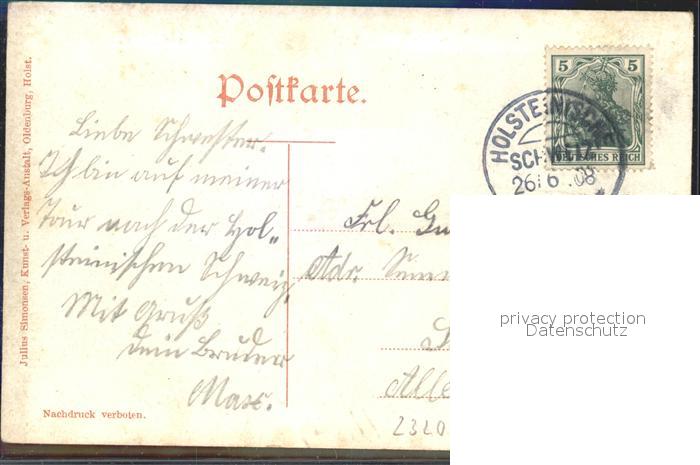 Postkarte.
5 5
DEUTSCHES REICH
HOLSTEINISCHE
SCHWEIZ
26/6.08
Liebe Schwester.
Ich bin auf meiner
Tour nach der Hol-
steinischen Schweiz.
Mit Gruß
Dein Bruder
Max.
Frl.
Adr.
2320
Nachdruck verboten.
Julius Simonsen, Kunst- u. Verlags-Anstalt, Oldenburg, Holst.
privacy protection
Datenschutz